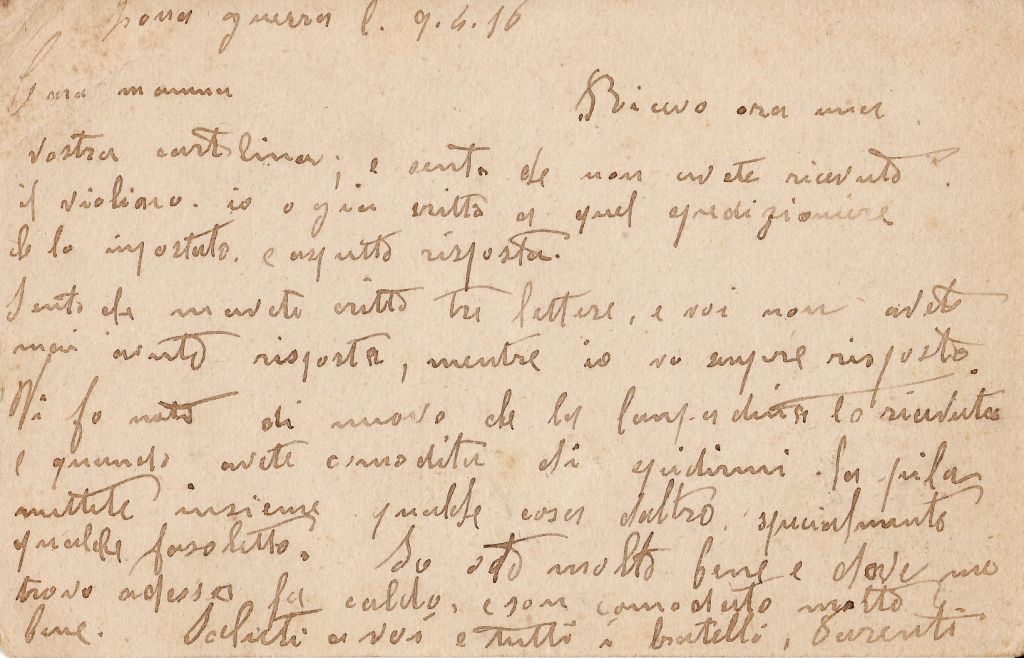 zona guerra l. 9.4.16
Cara mamma
Ricevo ora una
vostra cartolina; e sento che non avete ricevuto
il violino. io o gia critto a quel spedizioniere
che lo inpostato. e aspetto risposta.
Sento che mavete critto tre lettere, e voi non avete
mai avuto risposta, mentre io vo senpre risposto.
Vi fo noto di nuovo che la lanpadina lo ricevuta
e quando avete comodita di spedirmi la pila
mettete insieme qualche cosa daltro. specialmente
qualche fasoletto. Io sto molto bene e dove mi
trovo adesso fa caldo, e son comodato molto
bene. Saluti a voi e tutti i fratelli, parenti